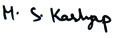 M. S. Kashyap